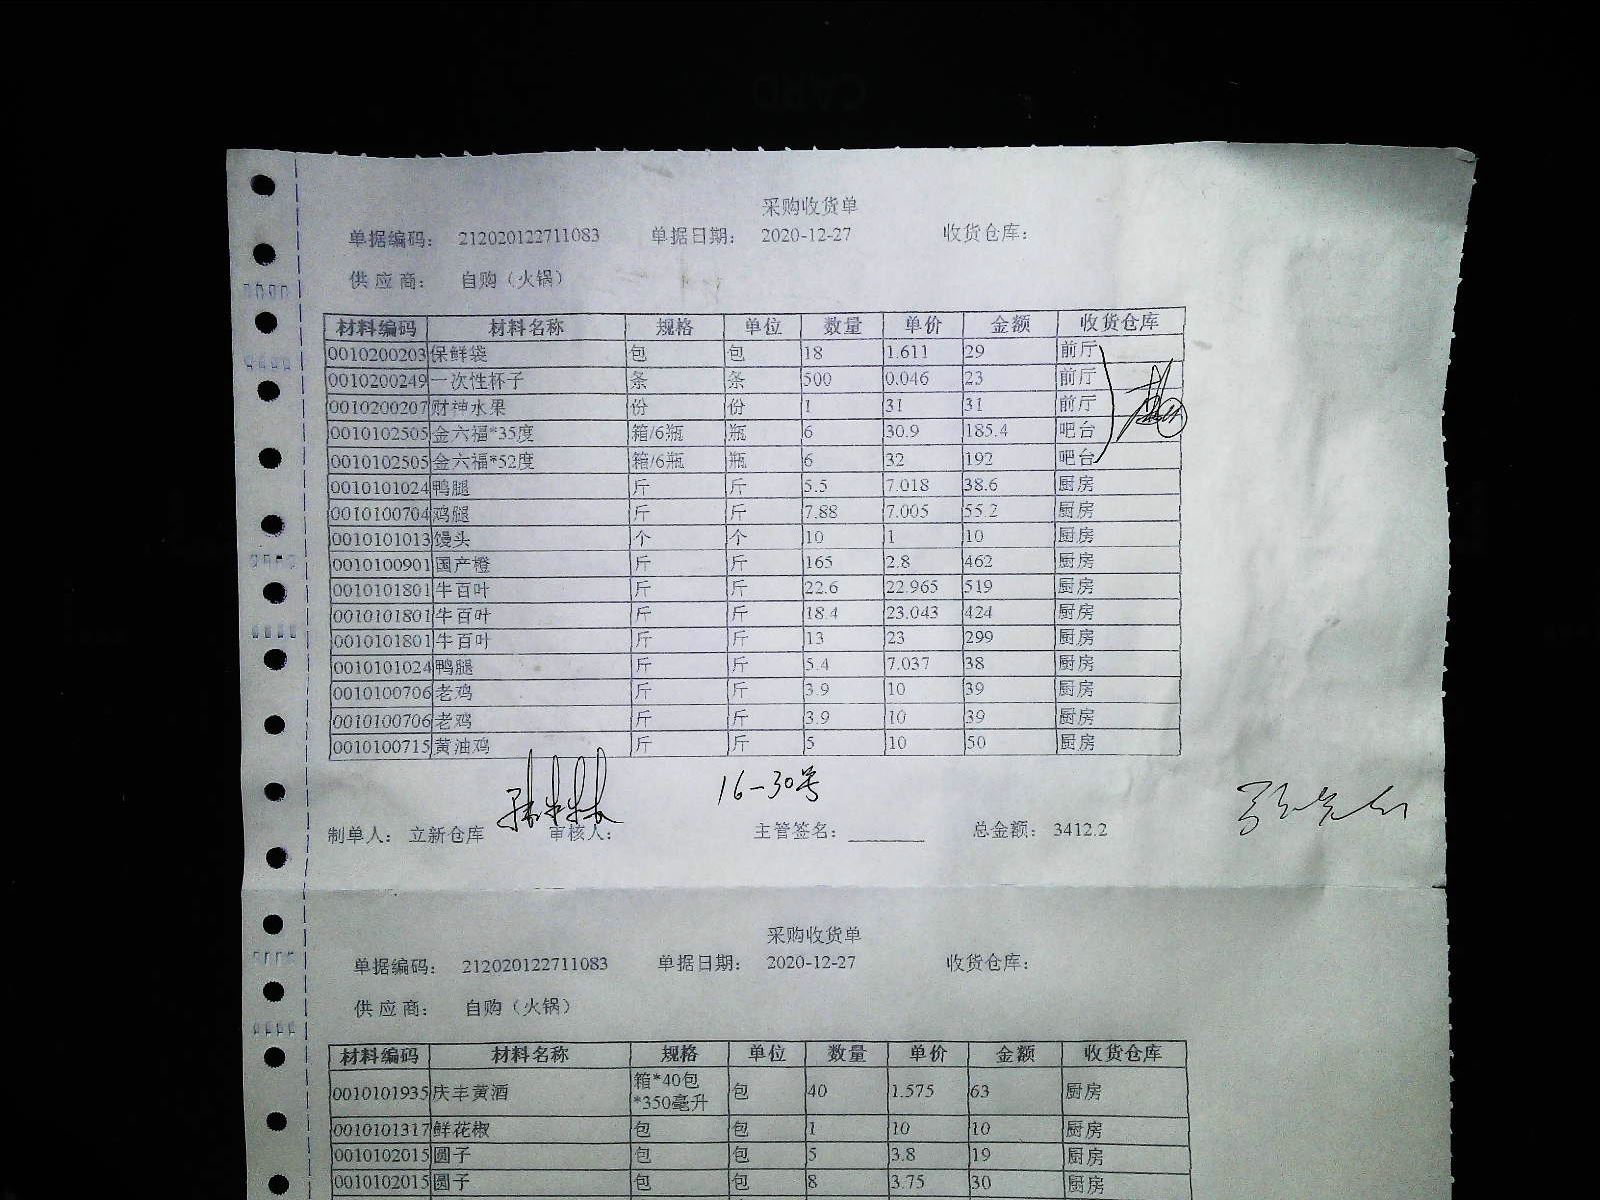 采购收货单
单据编码： 212020122711083 单据日期： 2020-12-27 收货仓库：
供 应 商： 自购（火锅）
材料编码 材料名称 规格 单位 数量 单价 金额 收货仓库
0010200203 保鲜袋 包 包 18 1.611 29 前厅
0010200249 一次性杯子 条 条 500 0.046 23 前厅
0010200207 财神水果 份 份 1 31 31 前厅
0010102505 金六福*35度 箱/6瓶 瓶 6 30.9 185.4 吧台
0010102505 金六福*52度 箱/6瓶 瓶 6 32 192 吧台
0010101024 鸭腿 斤 斤 5.5 7.018 38.6 厨房
0010100704 鸡腿 斤 斤 7.88 7.005 55.2 厨房
0010101013 馒头 个 个 10 1 10 厨房
0010100901 国产橙 斤 斤 165 2.8 462 厨房
0010101801 牛百叶 斤 斤 22.6 22.965 519 厨房
0010101801 牛百叶 斤 斤 18.4 23.043 424 厨房
0010101801 牛百叶 斤 斤 13 23 299 厨房
0010101024 鸭腿 斤 斤 5.4 7.037 38 厨房
0010100706 老鸡 斤 斤 3.9 10 39 厨房
0010100706 老鸡 斤 斤 3.9 10 39 厨房
0010100715 黄油鸡 斤 斤 5 10 50 厨房
16-30号
制单人： 立新仓库 审核人： 主管签名： 总金额： 3412.2
采购收货单
单据编码： 212020122711083 单据日期： 2020-12-27 收货仓库：
供 应 商： 自购（火锅）
材料编码 材料名称 规格 单位 数量 单价 金额 收货仓库
0010101935 庆丰黄酒 箱*40包*350毫升 包 40 1.575 63 厨房
0010101317 鲜花椒 包 包 1 10 10 厨房
0010102015 圆子 包 包 5 3.8 19 厨房
0010102015 圆子 包 包 8 3.75 30 厨房